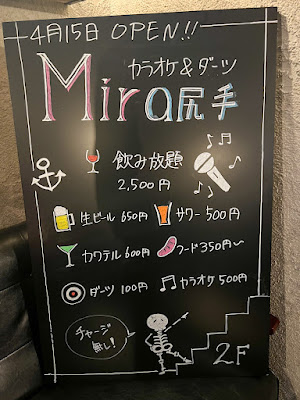 4月15日 OPEN!!
カラオケ&ダーツ
Mira尻手
飲み放題
2,500円
生ビール 650円 サワー 500円
カクテル 600円 フード 350円〜
ダーツ 100円 カラオケ 500円
チャージ
無し!
2F